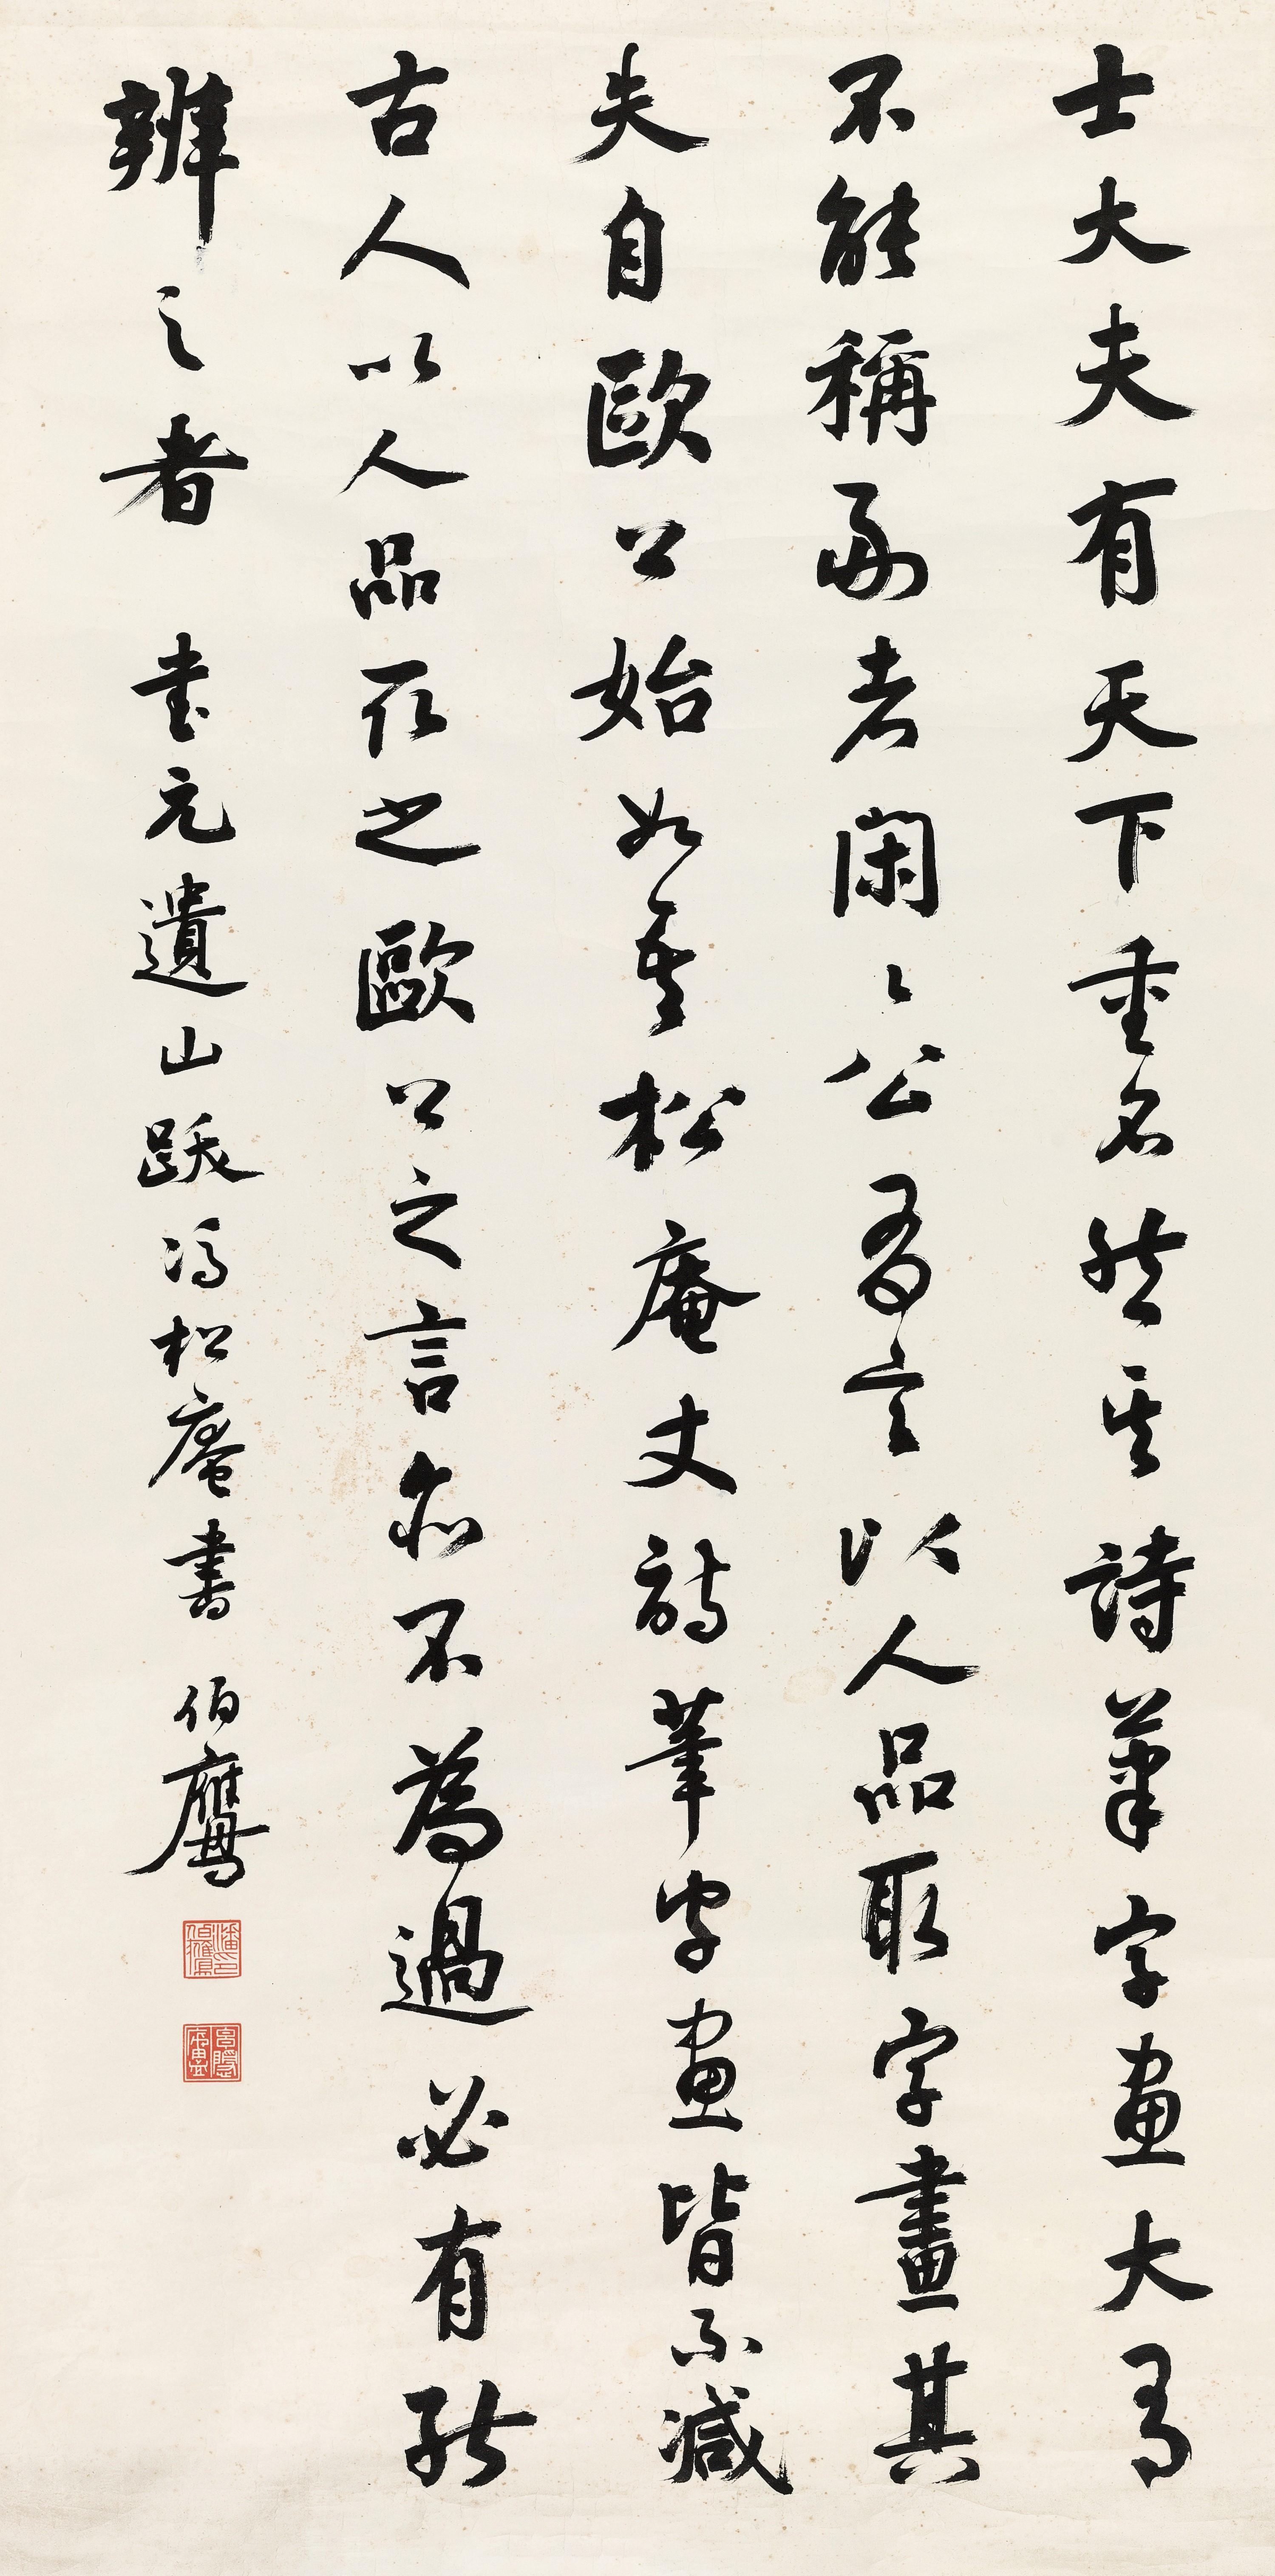 士大夫有天下重名然其詩筆字畫大有
不能稱副者閑〻公有言以人品取字畫其
失自歐公始如吾松庵丈詩筆字畫皆不減
古人以人品取之歐公之言亦不為過必有能
辨之者 書元遺山跋馮松庵書 伯鷹
潘伯鷹印